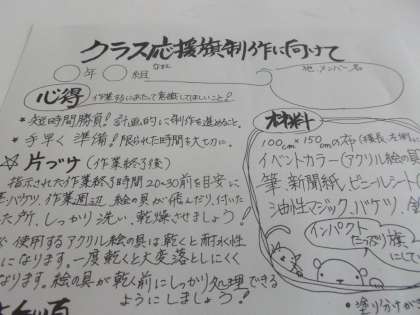 クラス応援旗制作に向けて
年 組 なまえ
他、メンバー名
心得 作業するにあたって意識してほしいこと!
・短時間勝負!計画的に制作を進めること。
・手早く準備!限られた時間を大切に。
☆片づけ(作業終了後)
指定された作業終了時間 20~30前を目安に
バケツ、作業周辺 絵の具が飛んだり、付いた
た所、しっかり洗い、乾燥させましょう!
使用するアクリル絵の具は乾くと耐水性
になります。一度乾くと大変落としにくく
なります。絵の具が乾く前にしっかり処理できる
ようにしましょう!
材料
100cm×150cmの布
イベントカラー(アクリル絵の具
筆、新聞紙、ビニールシート
油性マジック、バケツ、
インパクト
たっぷり旗
・塗り分けが